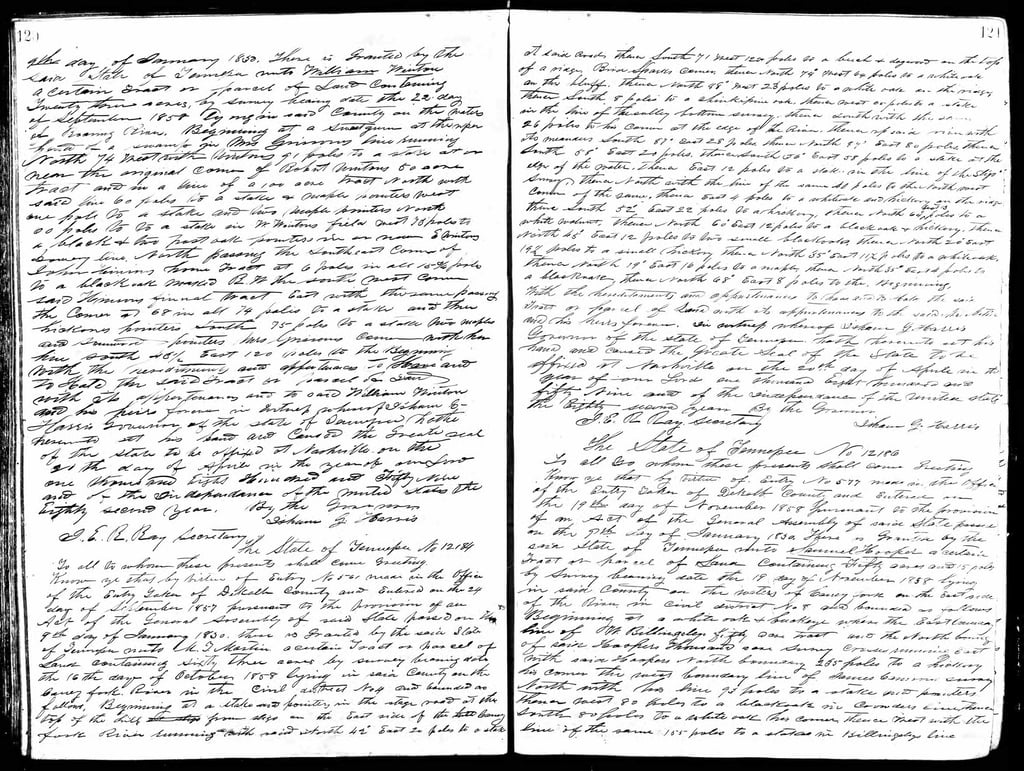 120
day of January 1830. There is Granted by the
said State of Tennessee unto William Winton
a certain Tract or parcel of Land Containing
Twenty three acres, by survey bearing date the 22 day
of September 1858 lying in said County on the waters
of River. Beginning at a Sweetgum at the
in a swamp in Mrs Grissoms line running
North 74 West with Wintons 91 poles to a stake at or
near the original corner of Robert Wintons 50 acre
tract and in a line of a 100 acre tract North with
said line 60 poles to a stake & maple pointers West
one pole to a stake and two maple pointers North
60 poles to a stake in W Wintons field West 98 poles to
a black & two post oak pointers in or near E Wintons
Survey line, North passing the Southeast Corner of
John home Tract at 6 poles in all poles
to a black oak marked B. W the south West corner
said tract East with the same passing
the Corner at 68 in all 74 poles to a stake and three
hickory pointers South 75 poles to a stake two maples
and pointers Mrs Grissoms corner with her
line South 48½ East 120 poles to the Beginning
With the and appurtenances to Have and
to Hold the said Tract or parcel of Land
with its appurtenances and to said William Winton
and his heirs forever in witness whereof Isham G
Harris Governor of the state of Tennessee hath
hereunto set his hand and Caused the Great seal
of the State to be affixed at Nashville on the
21th day of April in the year of our Lord
one thousand Eight Hundred and Fifty Nine
and of the Independence of the United States the
Eighty second year. By the Governor
Isham G. Harris
J. E. R. Ray Secretary
The State of Tennessee No 12184
To all to whom these presents shall come Greeting
Know ye that by Virtue of Entry No 521 made in the Office
of the Entry Taker of DeKalb County and Entered on the 24
day of September 1857 pursuant to the provision of an
Act of the General Assembly of said State passed on the
9th day of January 1830. there is Granted by the said State
of Tennessee unto M. T. Martin a certain Tract or parcel of
Land containing sixty three acres by survey bearing date
the 16th day of October 1858 lying in said County on the
Caney fork River in the Civil district No 4 and bounded as
follows, Beginning at a stake and pointers in the stage road at the
top of the hill from on the East side of the Caney
fork River running with said North 42° East 20 poles to a stake
121
at said corner thence South 71 West 120 poles to a beech & dogwood on the top
of a ridge, Sparks corner, thence North 74° West 64 poles to a white oak
on the bluff. thence North 88° West 23 poles to a white oak on the ridge
thence South 8 poles to a chinkipin oak, thence West poles to a stake
in the line of the valley bottom survey thence south with the same
26 poles to his corner at the edge of the River thence up said river with
its meanders South 61° East 28 poles thence North 84° East 80 poles, thence
South 56° East 20 poles, thence South 20° East 58 poles to a stake at the
edge of the water, thence East 12 poles to a stake in the line of the
survey thence North with the line of the same 48 poles to the North west
corner of the same, thence East 4 poles to a white oak and hickory on the ridge
thence South 52° East 22 poles to a hickory, thence North 60° poles to a
white walnut, thence North 60° East 12 poles to a black oak & hickory, thence
North 45° East 12 poles to two small black oaks, thence North 20 East
198 poles to a small hickory thence North 55° East 112 poles to a white oak
thence North 40° East 16 poles to a maple, thence North 35° East 12 poles to
a black oak, thence North 68° East 8 poles to the Beginning,
With the hereditaments and appurtenances to Have and to Hold the said
Tract or parcel of Land with its appurtenances to the said M. T. Martin
and his heirs forever. In witness whereof Isham G. Harris
Governor of the state of Tennessee hath hereunto set his
hand, and caused the Great Seal of the State to be
affixed at Nashville on the 20th day of April in the
year of our Lord one thousand Eight hundred and
fifty Nine and of the Independence of the United States
the Eighty second year By the Governor
Isham G. Harris
J. E. R. Ray Secretary
The State of Tennessee No 12186
To all to whom these presents shall come Greeting
Know ye that by Virtue of Entry No 577 made in the Office
of the Entry Taker of DeKalb County and Entered on
the 19th day of November 1858 pursuant to the provision
of an Act of the General Assembly of said State passed
on the 9th day of January 1830. There is Granted by the
said State of Tennessee unto Samuel Hooper a certain
Tract or parcel of Land Containing Fifty acres and 15 poles
by Survey bearing date the 19 day of November 1858 lying
in said County on the waters of Caney fork on the East side
of the River in Civil district No 8 and bounded as follows
Beginning at a white oak & buckeye where the East boundary
line of M Billingsley Fifty acre tract and the North boundary
of said Hoopers Thousand acre Survey Cross running East
with said Hoopers North boundary 205 poles to a hickory
his corner the west boundary line of James survey
North with his line 92 poles to a stake and pointers
thence West 80 poles to a black oak in line thence
South 80 poles to a white oak his corner thence West with the
line of the same 155 poles to a stake in Billingsleys line